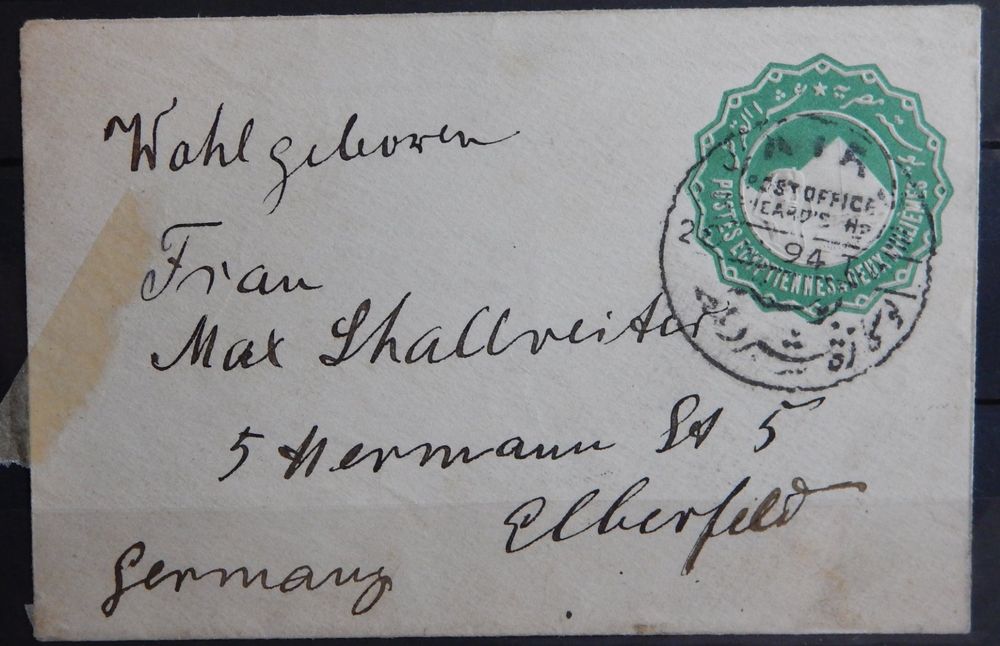 Wohlgeboren
Frau
Max Shallreiter
5 Hermann St 5
Elberfeld
Germany
POSTES EGYPTIENNES DEUX MILLIEMES
POST OFFICE
94